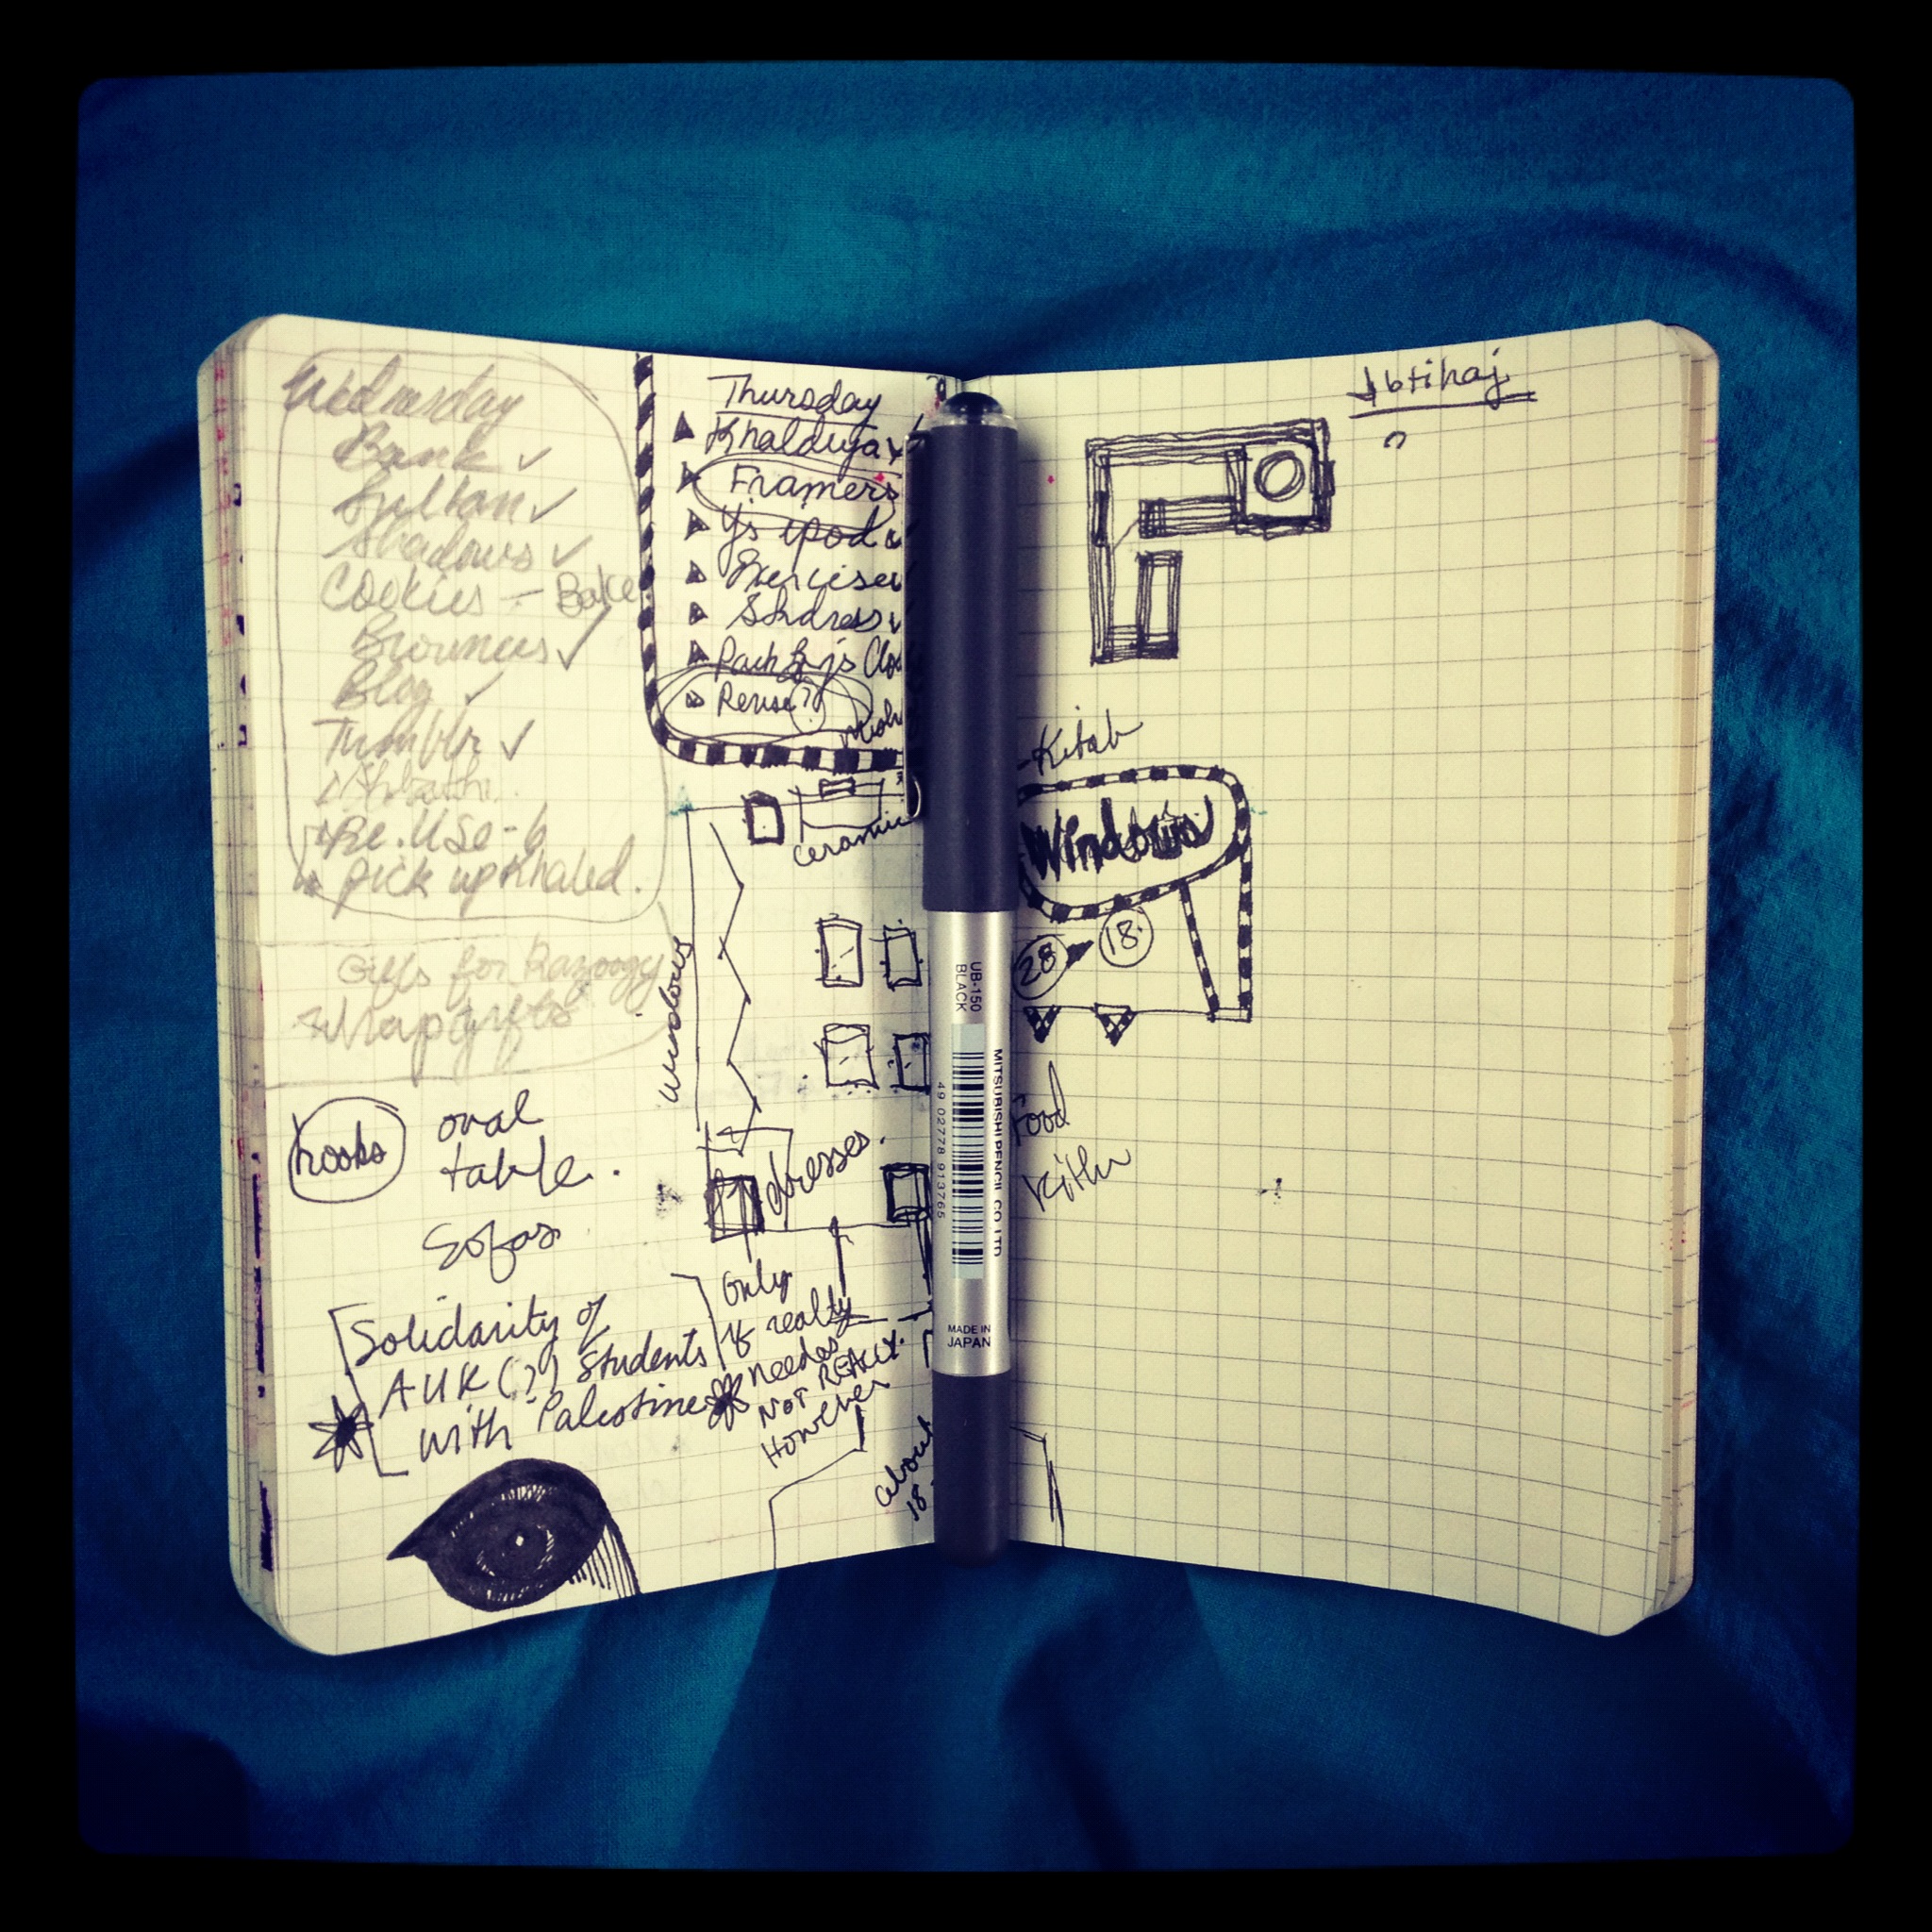 Wednesday
Bank ✓
Sultan ✓
Shadows ✓
Cookies - Bake
Brownies ✓
Blog ✓
Tumblr ✓
Re.Use - 6
pick up Khaled.
Gifts for Razoogy
Wrap gifts
hooks
oval
table.
Sofas
Solidarity of
AUK (?) Students
with Palestine
Thursday
Khaldiya
Framers
Y's ipod
Exercise
Reuse?
ceramic
Windows
dresses.
Only
if really
needed
NOT REALLY.
However
about
18
UB-150
BLACK
MITSUBISHI PENCIL CO., LTD
49 02778 913765
MADE IN
JAPAN
Ibtihaj
?
-Kitab
Windows
28
18.
Food